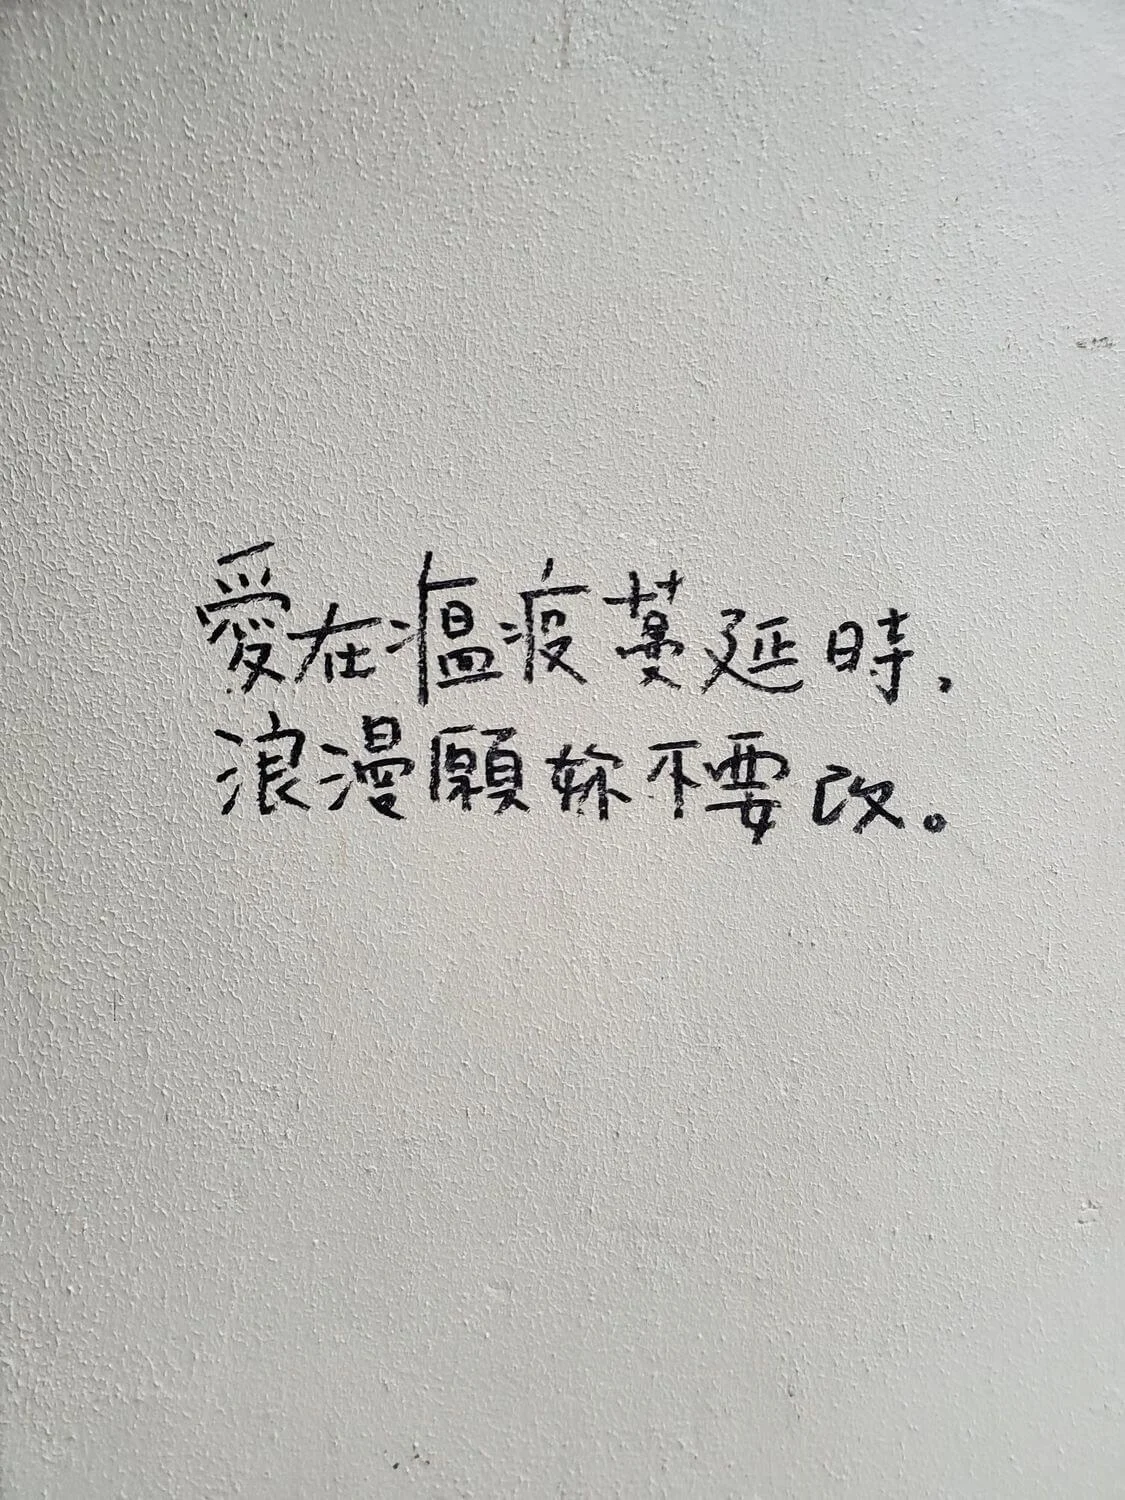 愛在瘟疫蔓延時，
浪漫願妳不要改。